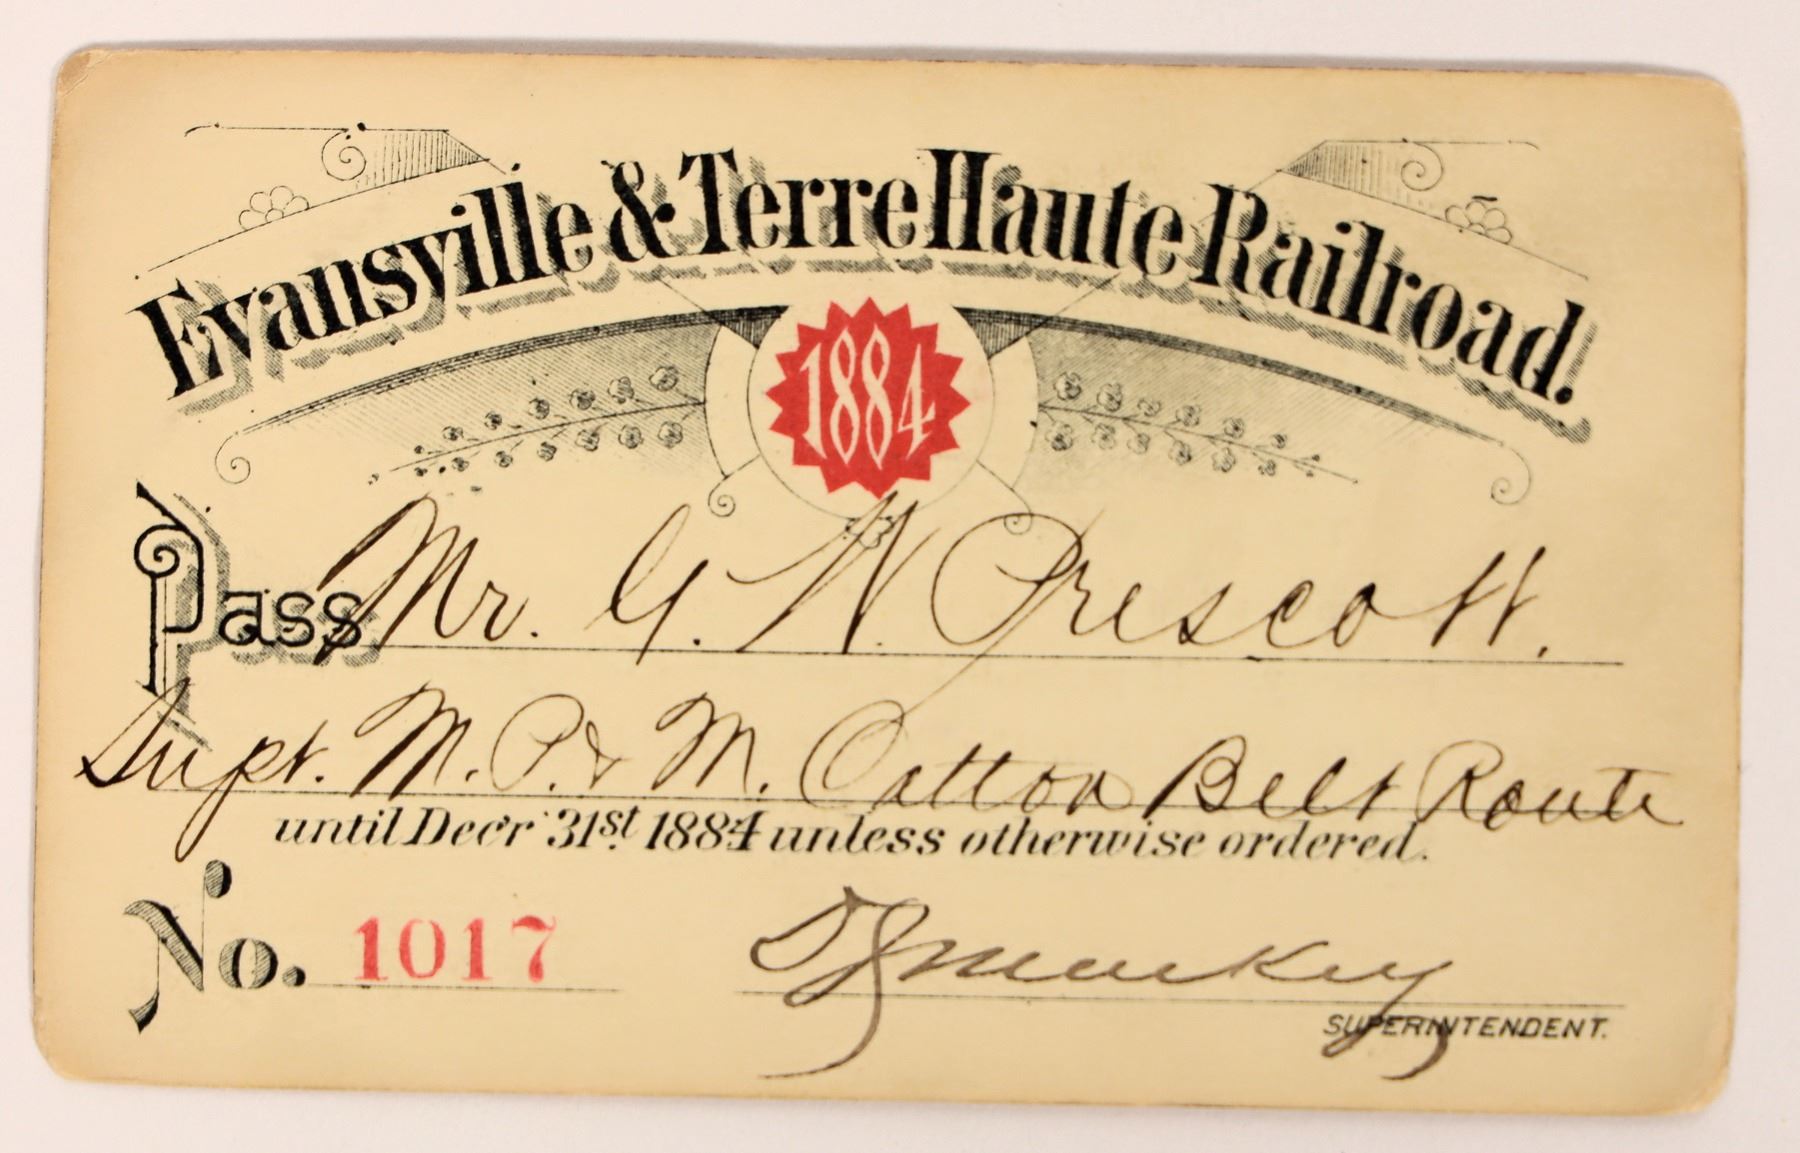 Evansville & Terre Haute Railroad.
1884
Pass Mr. G. W. Prescott.
Supt. M. P. & M. Cotton Belt Route
until Dec'r 31st 1884 unless otherwise ordered.
No. 1017
SUPERINTENDENT.